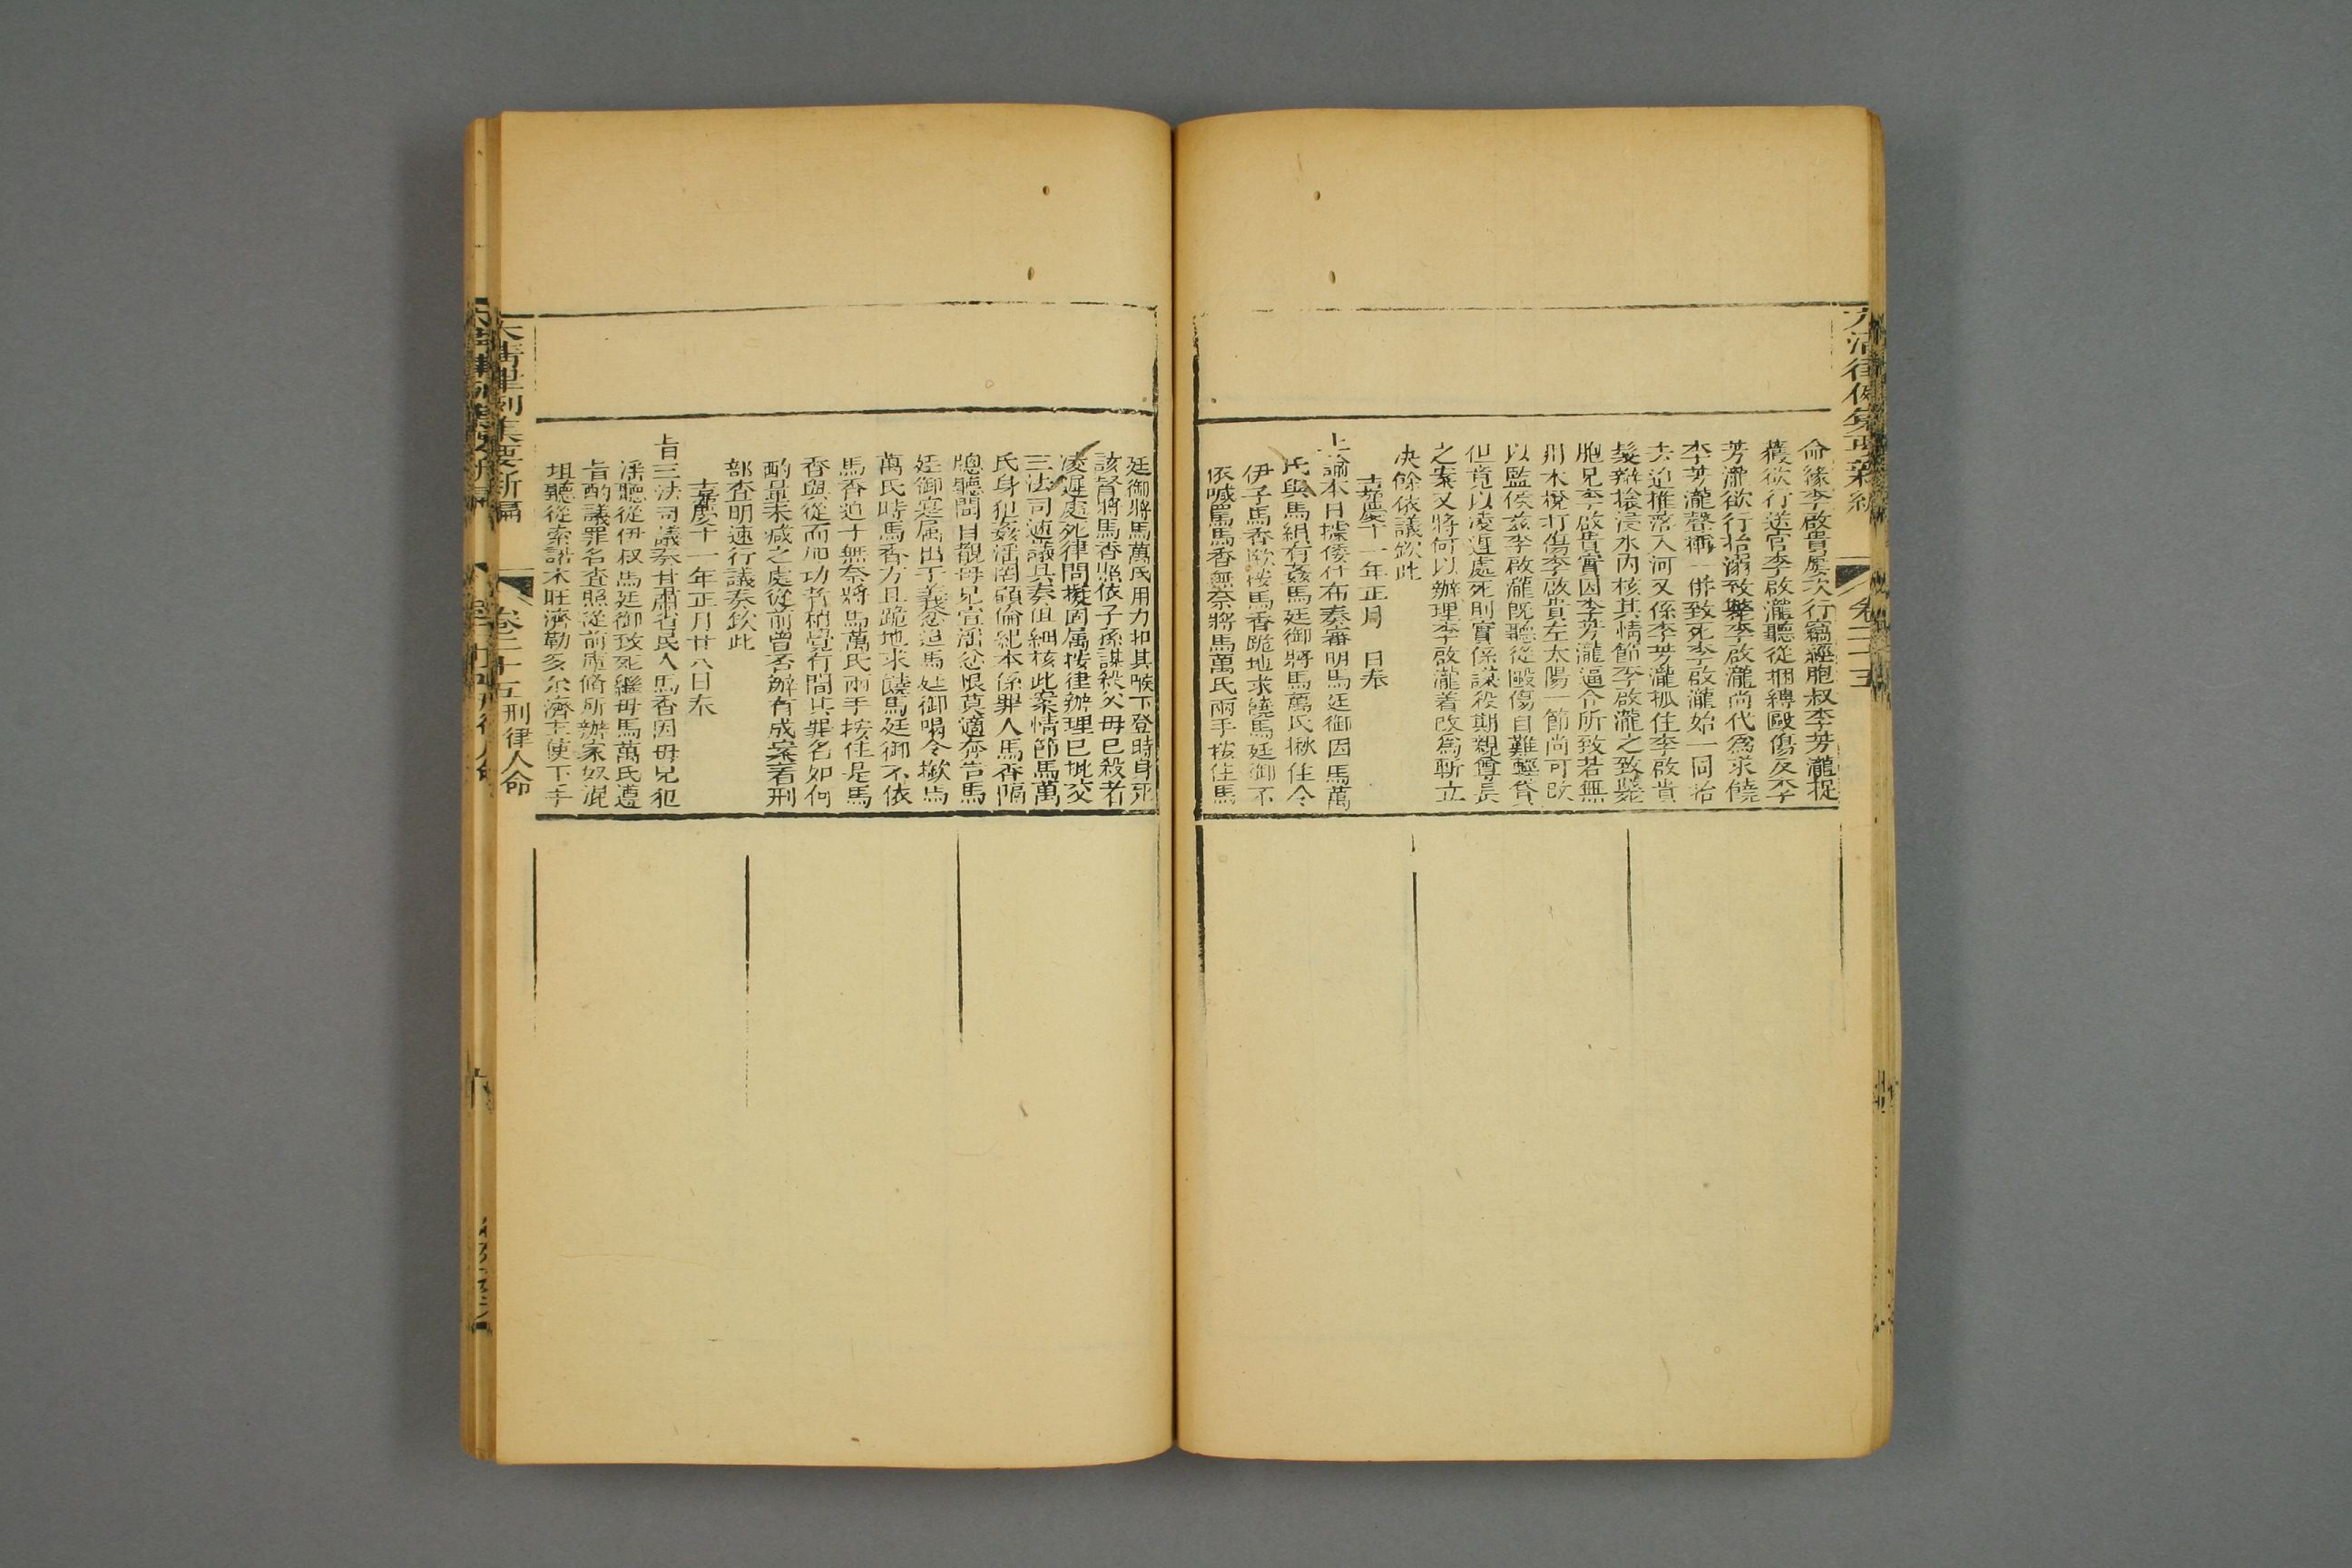 大清律例集要新編
卷二十五
命緣李啟貴屢次行竊經胞叔李芳瀧捉
獲欲行送官李啟瀧聽從捆縛毆傷及李
芳瀧欲行抬溺致斃李啟瀧尚代為求饒
李芳瀧聲稱一併致死李啟瀧始一同抬
去迨推落入河又係李芳瀧揪住李啟貴
髮辮搇浸水內核其情節李啟瀧之致斃
胞兄李啟貴實因李芳瀧逼令所致若無
用木棍打傷李啟貴左太陽一節尚可改
以監候茲李啟瀧既聽從毆傷自難輕貸
但竟以凌遲處死則實係謀殺期親尊長
之案又將何以辦理李啟瀧着改為斬立
決餘依議欽此
嘉慶十一年正月 日奉
上諭本日據倭什布奏審明馬廷御因馬萬
氏與馬絹有姦馬廷御將馬萬氏揪住令
伊子馬香欲按馬香跪地求饒馬廷御不
依喊罵馬香無奈將馬萬氏兩手按住馬
廷御將馬萬氏用力扣其喉下登時身死
該督將馬香照依子孫謀殺父母已殺者
凌遲處死律問擬固属按律辦理已批交
三法司速議具奏但細核此案情節馬萬
氏身犯姦淫罔顧倫紀本係罪人馬香隔
牕聽聞目覩母兄宣淫忿恨莫適奔告馬
廷御寔属出于義忿迨馬廷御喝令撳馬
萬氏時馬香方且跪地求饒馬廷御不依
馬香迫于無奈將馬萬氏兩手按住是馬
香與從而加功者稍覺有間其罪名如何
酌量未减之處從前曾否辦有成案着刑
部查明速行議奏欽此
嘉慶十一年正月廿八日奉
旨三法司議奏甘肅省民人馬香因母兄犯
淫聽從伊叔馬廷御致死繼母馬萬氏遵
旨酌議罪名查照從前庫脩所辦家奴混
坦聽從索諾木旺濟勒多尔濟主使下手
大清律例集要新編
卷二十五刑律人命